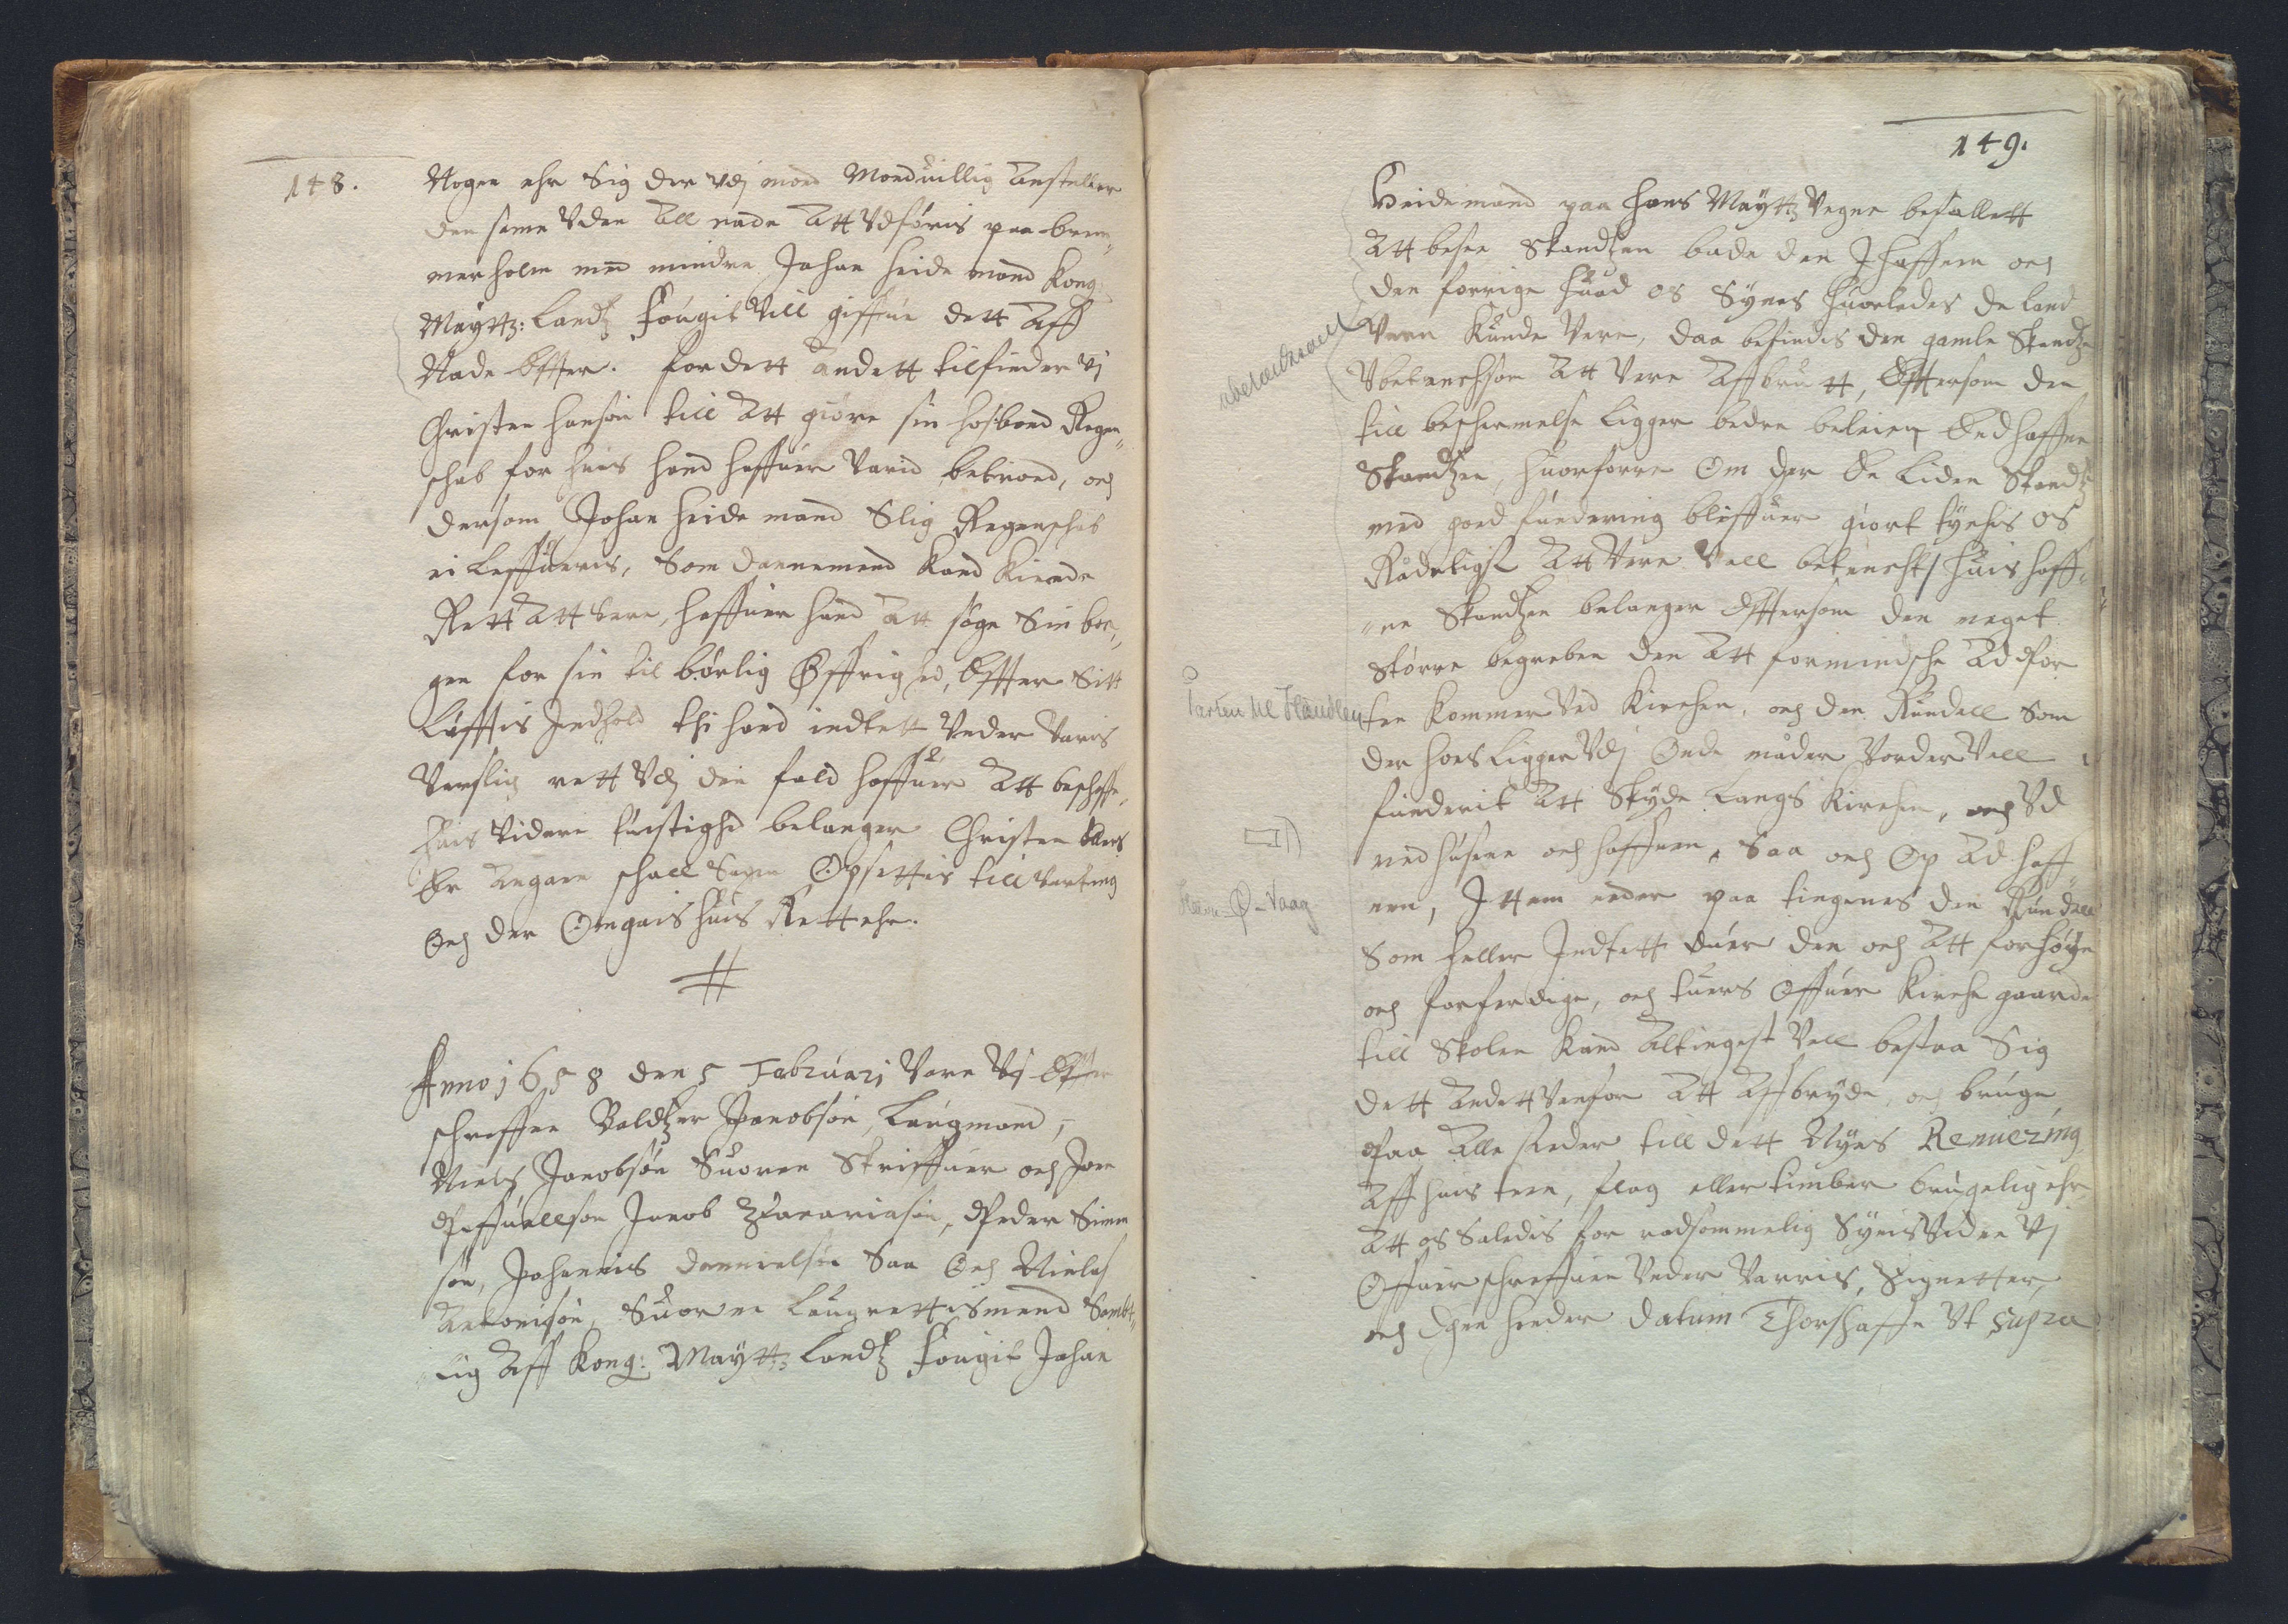 148.
Nogen ehr Sig der vdj mod Moduillig Anstiller
den same Vden All nade Att Vdføris paa brem„
merholm med mindre Johan Heidemand Kong:
Mayttz: Landtz Fougit Vill giffue dett Aff
Nade Effter. for dett andett tilfinder Vj
Christen Hansøn till Att giøre sin hosbond Regen„
schab for huis hand haffuer Varid betroed, och
dersom Johan Heidemand Slig Regenschab
ei Leffueris, Som dannemend Kand Kiende
Rett Att vere, haffuer hand Att søge Sin bor„
gen for sin tilbørlig Øffrighed, Effter Sitt
Løfftis Indhold thi hand indtett Vnder Varis
Verslig rett Vdj din fald haffuer Att beschaffe,
huis Videre schyldighed belanger Christen
Er Angaen schall Sagen Opsettis till Varting
Och der Omgaais huis Rett ehr.
Anno 1658 den 5 Februarj Vare Vj Effter
schreffne Baldtzer Jacobsøn, Laugmand,
Niels Jacobsøn Suoren Skriffuer och Joen
Poffuellsøn Jacob Zacariasøn, Peder Simen
søn, Johannis Dannielsøn Saa Och Nielas
Antonisøn, Suorne Laugrettismend Sambt„
lig Aff Kong: Mayttz Landtz Fougit Johan
149.
Heidemand paa Hans Mayttz Vegne befallett
Att besee Skandtzen bade den J haffnen och
den forrige huad os Synes huorledes de Land
Vern kunde Vere, daa befindis den gamle Skandtze
Vbetenchsom Att Vere Affbrutt, Efftersom den
till beschermelse ligger bedre beleien End haffne
Skandtzen, huorforre Om der En Liden Skandtz
med goed fundering bliffuer giort tyckis os
Rådeligst Att Vere Vell betencht, huis haff„
„ne Skandtzen belanger Efftersom den noget
Større begreben den Att formindsche Ad for
ten kommer Ved Kirchen, och den Rundell Som
der hoes Ligger Vdj Onde måder Vorder Vell
funderit Att Skyde Langs Kirchen, och Vd
ved husene och haffnen, Saa och Op Ad haff„
nen, Jttem neder paa tingenes den Rundell
Som heller Indtett duer den och Att forhøye
och forferdige, och tuers Offuer Kirche gaarde
till Skolen Kand Altingest Vell bestaa Sig
dett Andett Venfor Att Affbryde, och bruge
Paa Alle steder till dett Nyes Renuering
Aff huis teen, flag eller timber brugelig ehr
Att os Saledis for radsommelig Synis Vidne Vj
Offuerschreffuene Vnder Vorris, Signetter,
och Egne hender Datum Thorshaffn Vt Supra
ubetænksom
Ø-Vaag